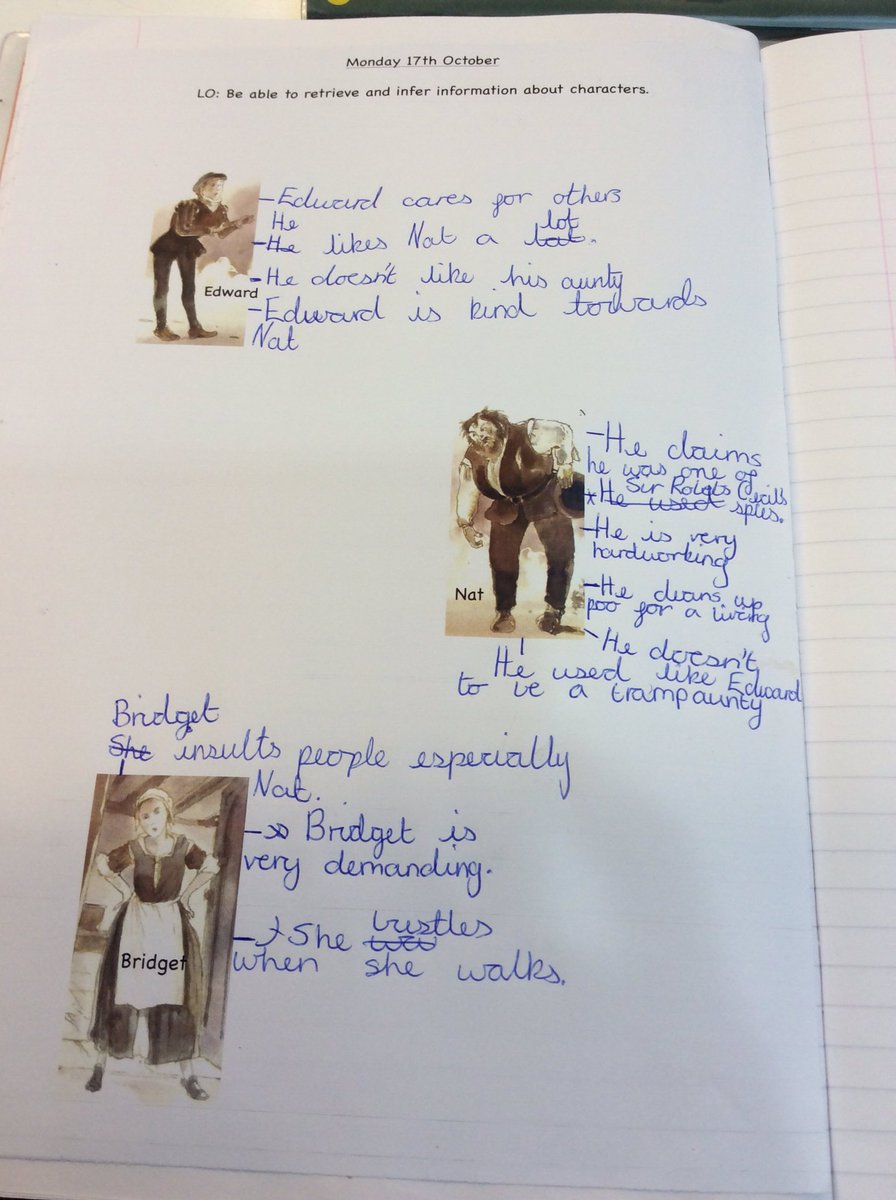 Monday 17th October
LO: Be able to retrieve and infer information about characters.
-Edward cares for others
He
-He likes Nat a lot.
-He doesn't like his aunty
Edward
-Edward is kind towards
Nat
-He claims
he was one of
Sir Robts Cecils
*He used spies.
-He is very
hardworking
-He cleans up
poo for a living
Nat
-He doesn't
like Edward
aunty
He used
to be a tramp
Bridget
She insults people especially
Nat.
-Bridget is
very demanding.
-She bustles
when she walks.
Bridget